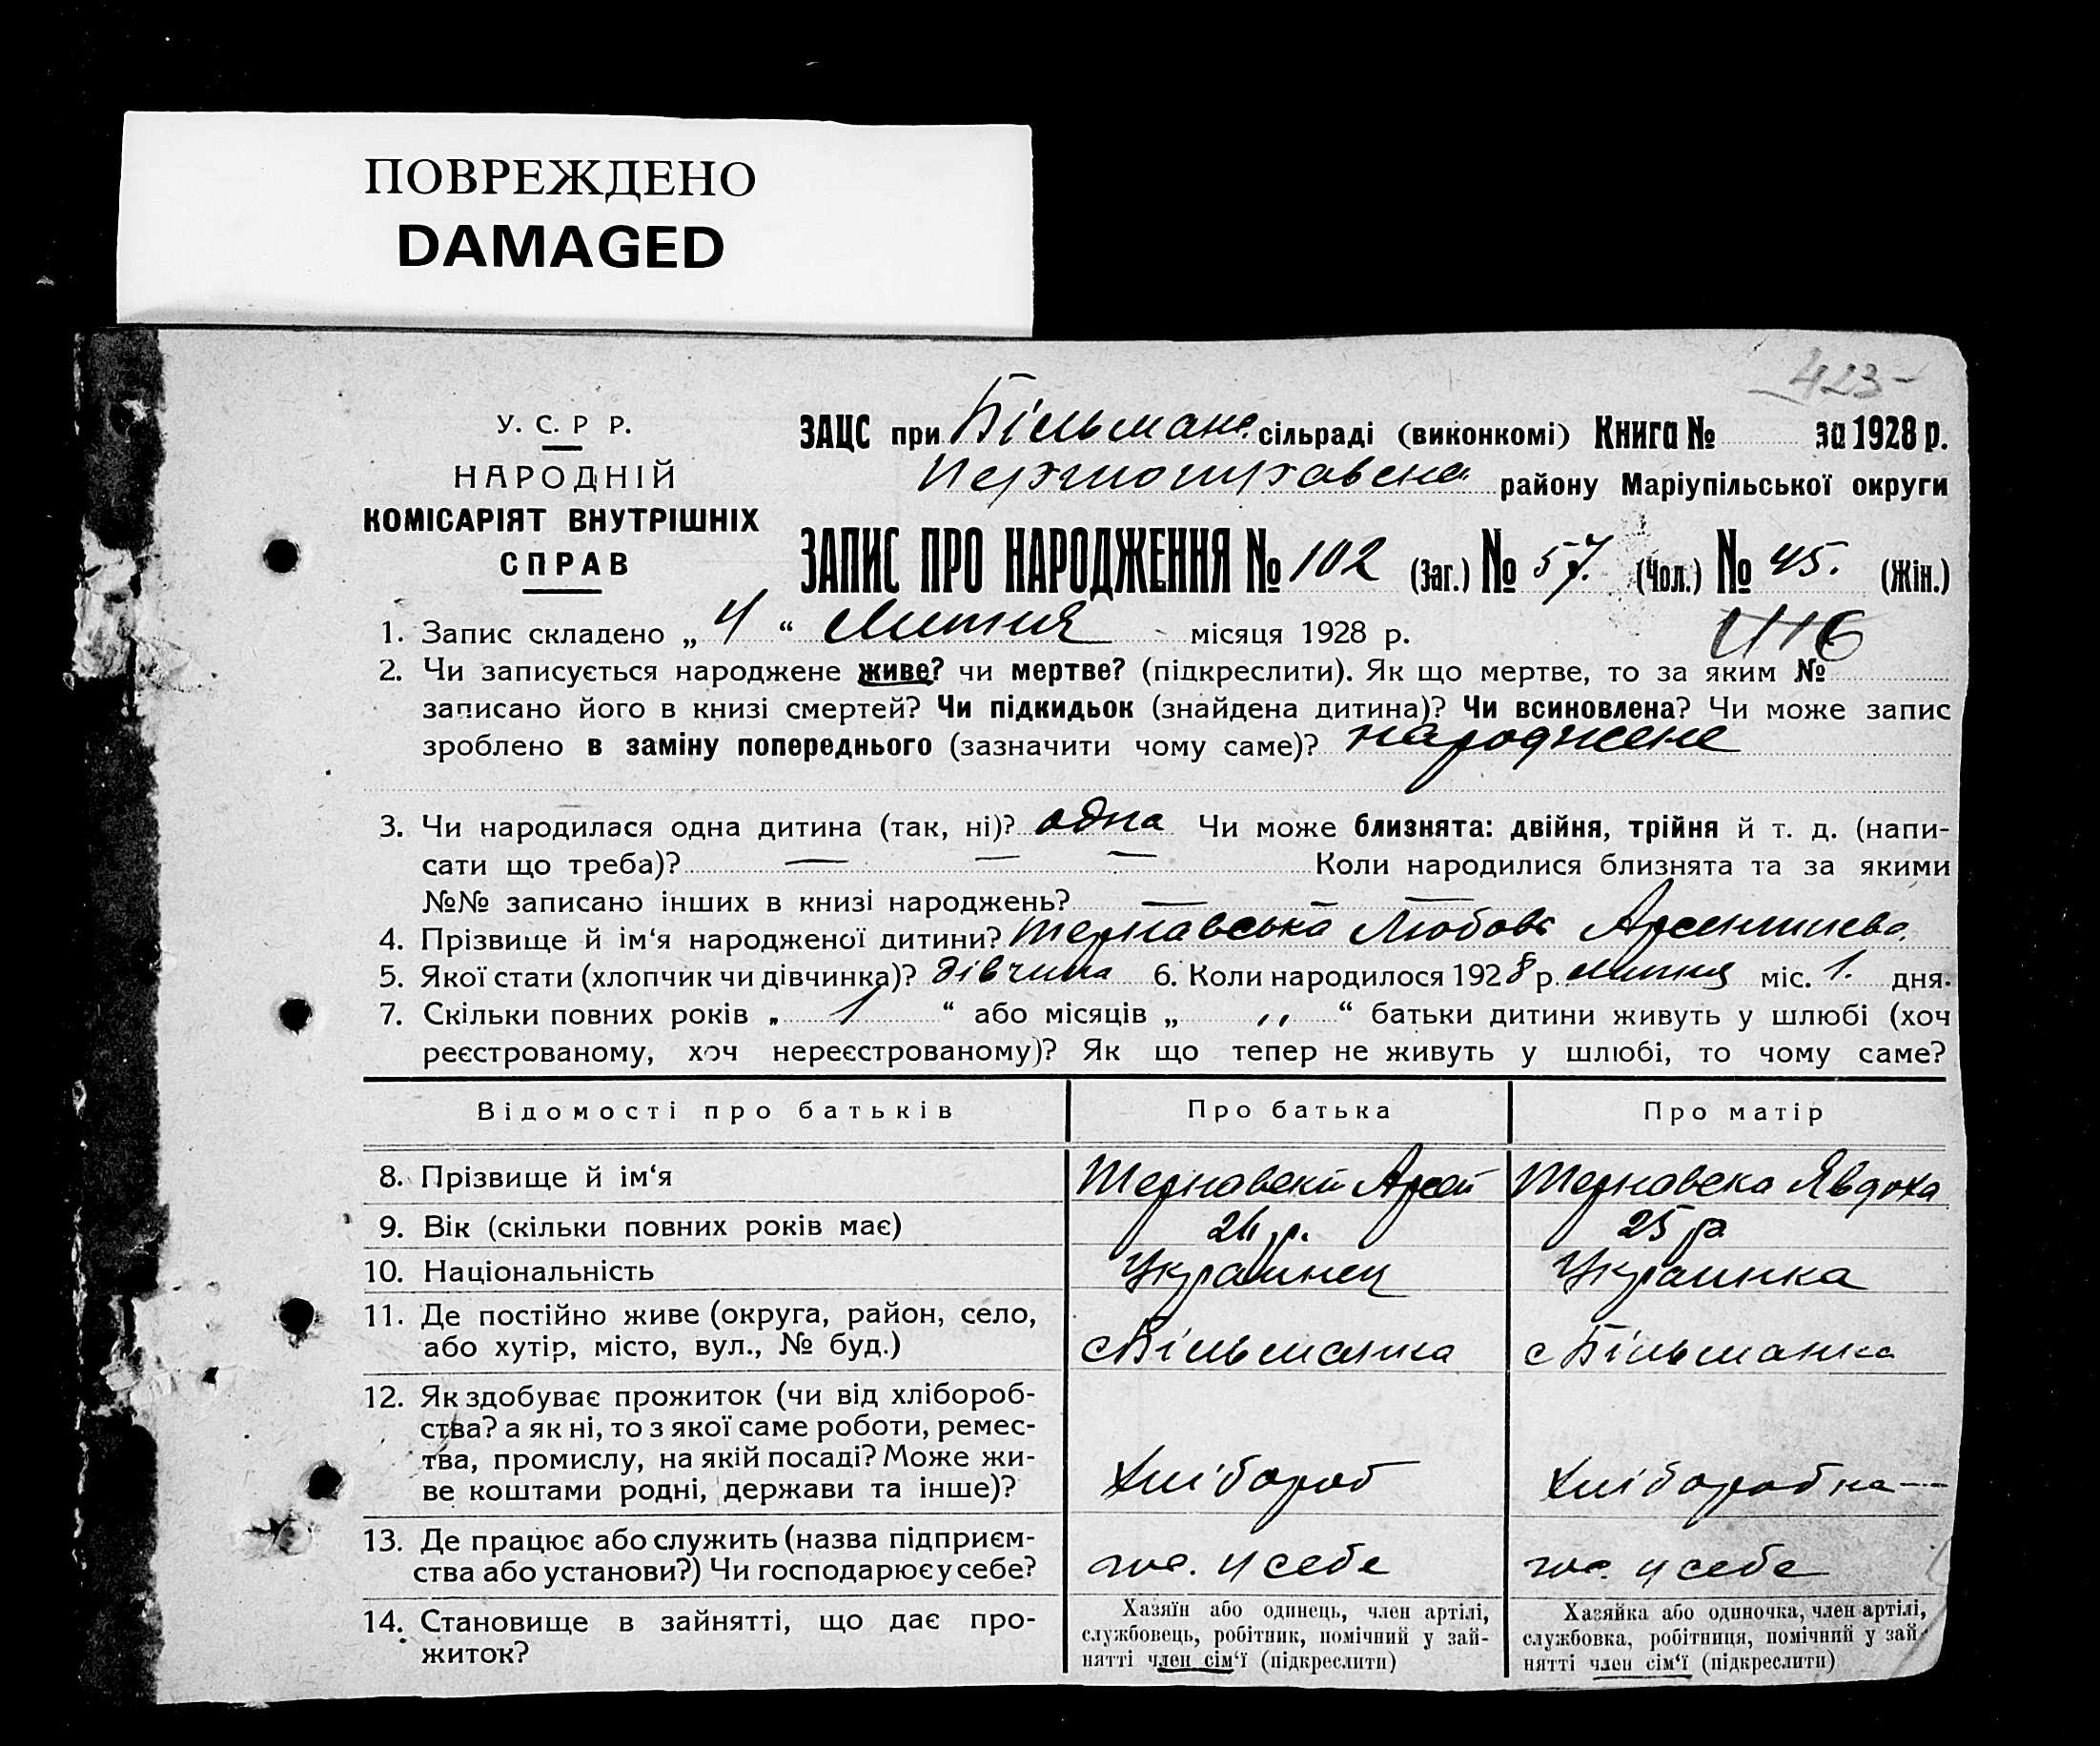 ПОВРЕЖДЕНО
DAMAGED
423-
У. С. Р Р.
НАРОДНІЙ
КОМІСАРІЯТ ВНУТРІШНІХ
СПРАВ
ЗАЦС при Більман. сільраді (виконкомі) Книга № за 1928 р.
району Маріупільської округи
ЗАПИС ПРО НАРОДЖЕННЯ № 102 (Заг.) № 57. (Чол.) № 45. (Жін.)
1. Запис складено „ 4 “ Липня місяця 1928 р.
2. Чи записується народжене живе? чи мертве? (підкреслити). Як що мертве, то за яким №
записано його в книзі смертей? Чи підкидьок (знайдена дитина)? Чи всиновлена? Чи може запис
зроблено в заміну попереднього (зазначити чому саме)? народжене
3. Чи народилася одна дитина (так, ні)? одна Чи може близнята: двійня, трійня й т. д. (напи-
сати що треба)? — — — Коли народилися близнята та за якими
№№ записано інших в книзі народжень? — — —
4. Прізвище й ім‘я народженої дитини? Терновська Любовь
5. Якої стати (хлопчик чи дівчинка)? дівчина 6. Коли народилося 1928 р. липня міс. 1. дня.
7. Скільки повних років „ 1 “ або місяців „ ,, “ батьки дитини живуть у шлюбі (хоч
реєстрованому, хоч нереєстрованому)? Як що тепер не живуть у шлюбі, то чому саме?
Відомості про батьків Про батька Про матір
8. Прізвище й ім‘я Терновский Терновска Явдоха
9. Вік (скільки повних років має) 24 р. 25 р
10. Національність Украинец Украинка
11. Де постійно живе (округа, район, село,
або хутір, місто, вул., № буд.) с Більманка с Більманка
12. Як здобуває прожиток (чи від хлібороб-
ства? а як ні, то з якої саме роботи, ремес-
тва, промислу, на якій посаді? Може жи-
ве коштами родні, держави та інше)? Хлібороб Хлiборобка
13. Де працює або служить (назва підприєм-
ства або установи?) Чи господарює у себе? гос. у себе гос. у себе
14. Становище в зайнятті, що дає про-
житок?
Хазяїн або одинець, член артілі,
службовець, робітник, помічний у зай-
нятті член сім‘ї (підкреслити)
Хазяйка або одиночка, член артілі,
службовка, робітниця, помічний у зай-
нятті член сім‘ї (підкреслити)